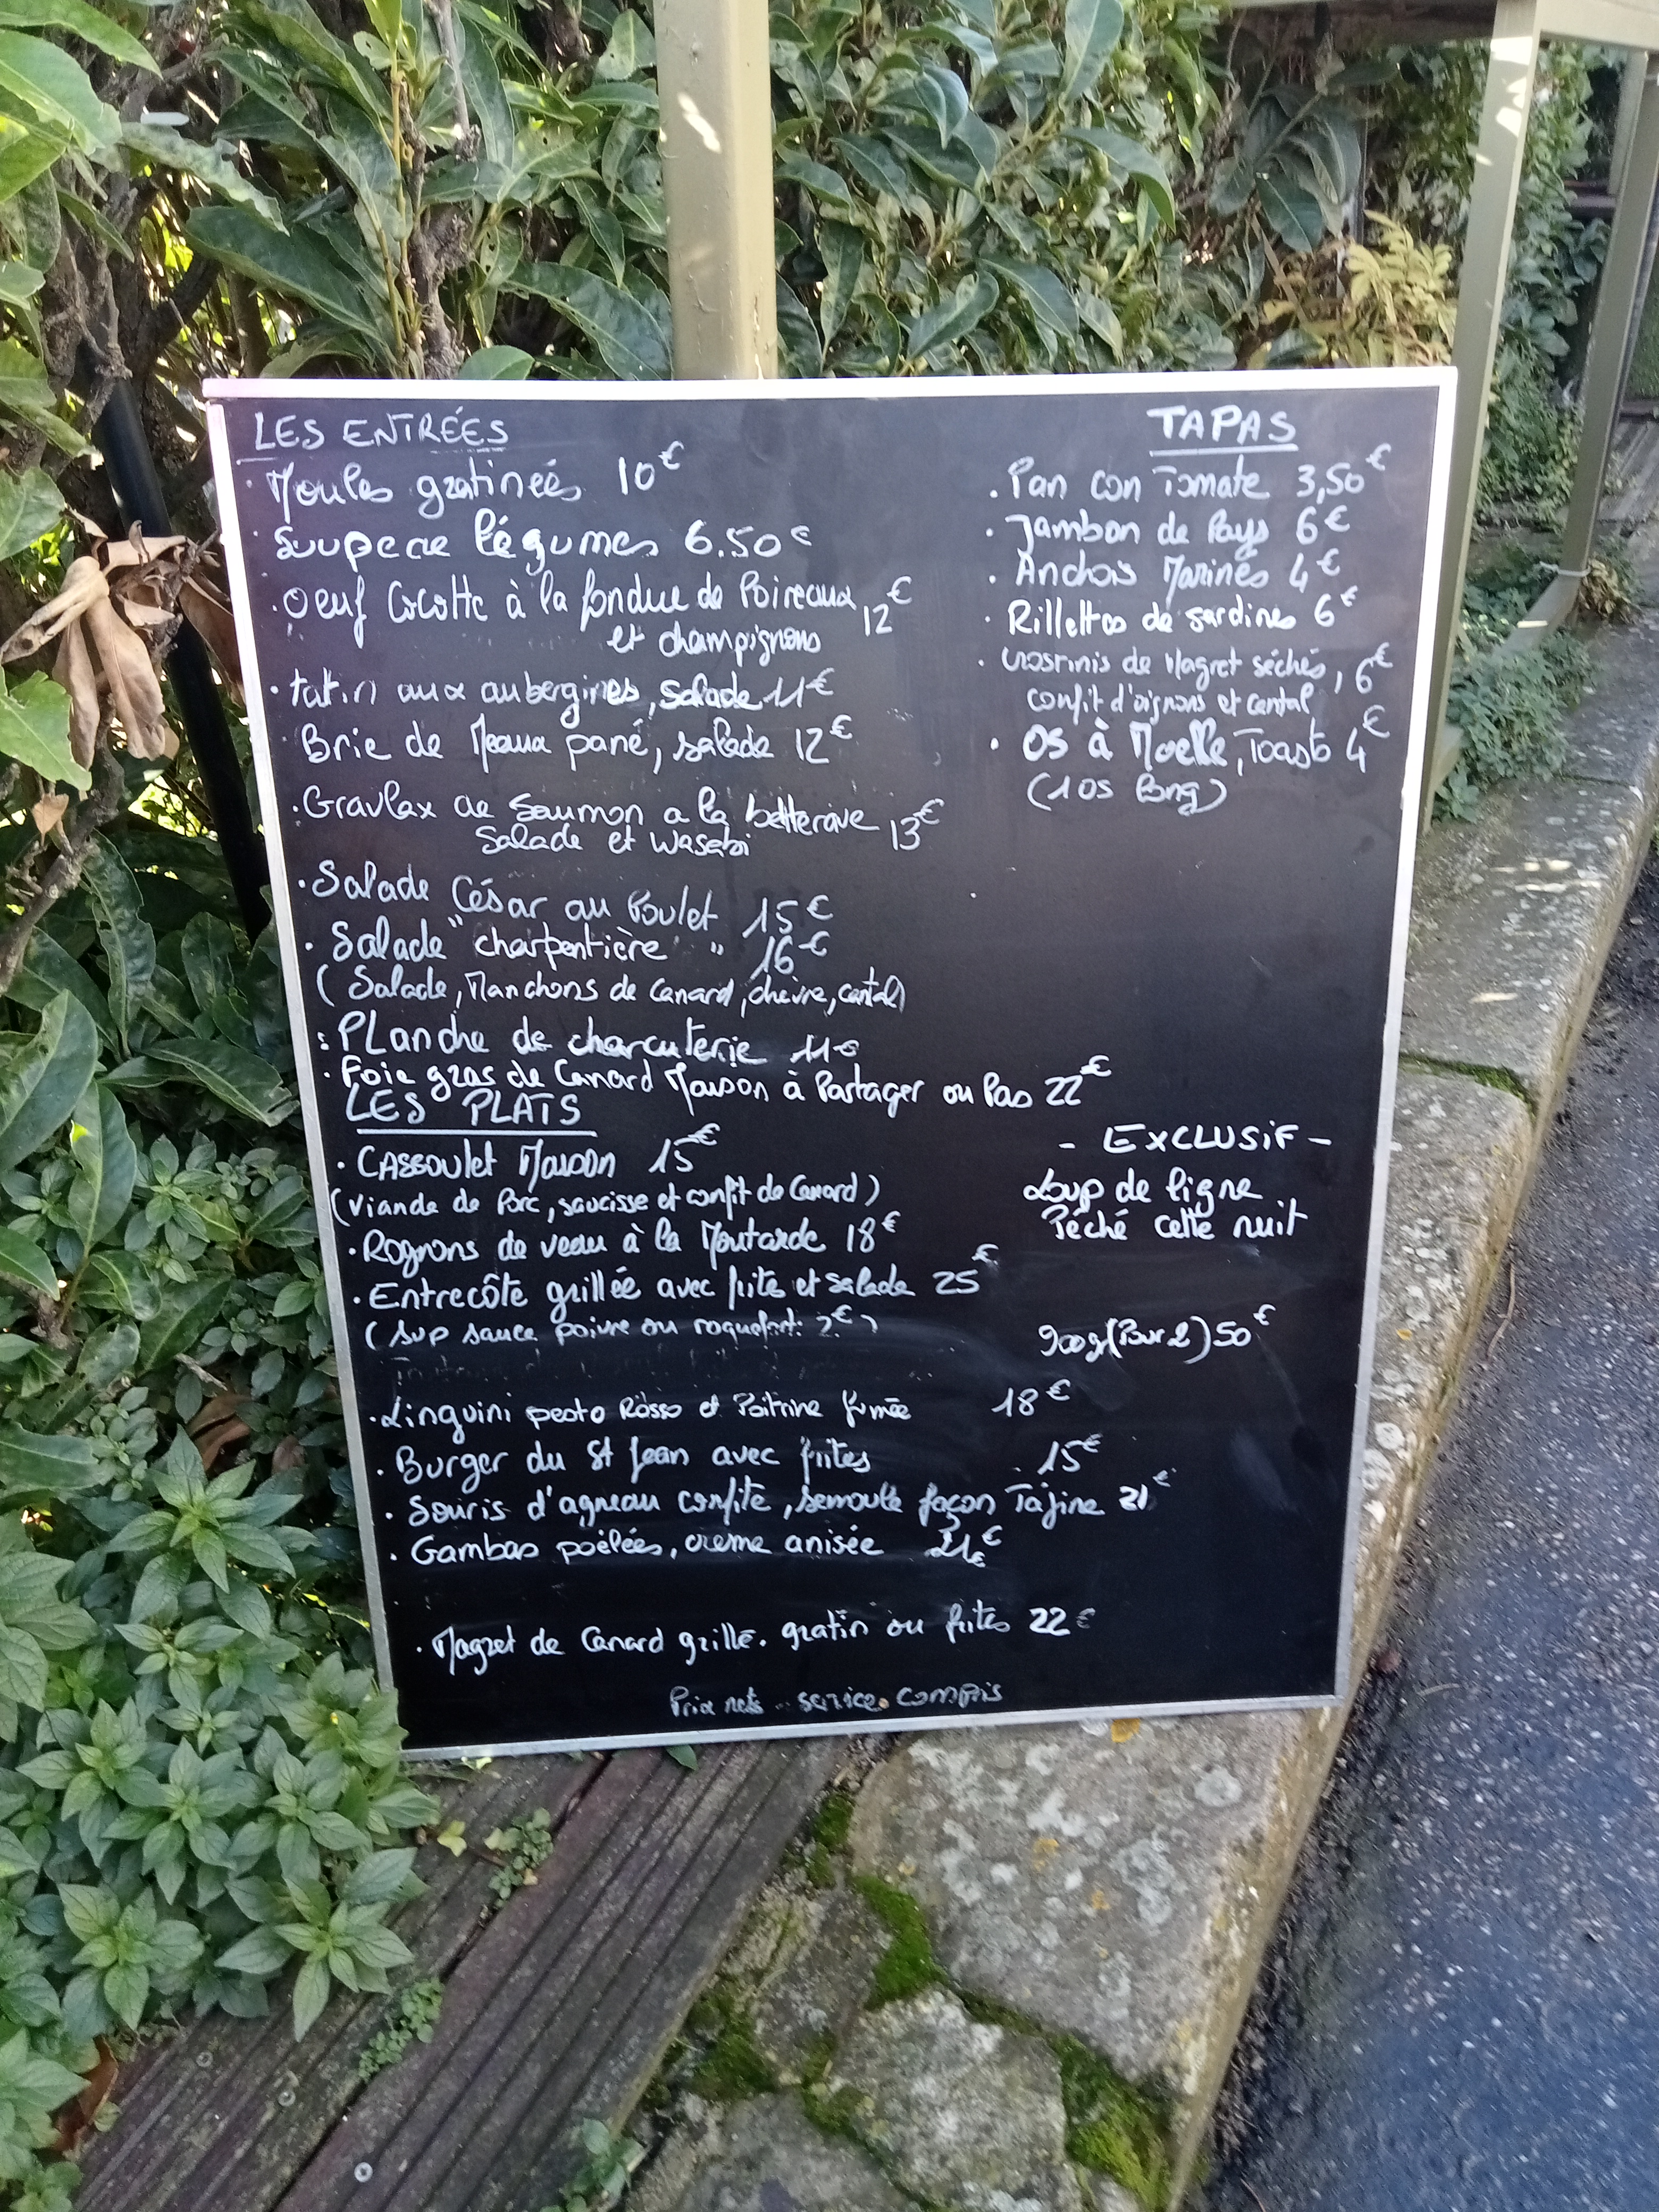 LES ENTRÉES
· Moules gratineés 10€
· Soupe de légumes 6.50€
· Oeuf Cocotte à la fondue de Poireaux 12€
et champignons
· tatin aux aubergines, salade 11€
· Brie de Meaux pané, salade 12€
· Gravlax de Saumon a la betterave 13€
Salade et Wasabi
· Salade César au Poulet 15€
· Salade "charpentière" 16€
(Salade, Manchons de Canard, chèvre, cantal)
· PLanche de charcuterie 11€
· Foie gras de Canard Maison à Partager ou Pas 22€
LES PLATS
· CASSOulet Maison 15€
(Viande de Porc, saucisse et confit de Canard)
· Rognons de veau à la Moutarde 18€
· Entrecôte grillée avec frite et salade 25€
(Sup sauce poivre ou roquefort: 2€)
· Linguini pesto Rosso et Poitrine fumée 18€
· Burger du St Jean avec frites 15€
· Souris d'agneau confite, semoule façon Tajine 21€
· Gambas poêlées, creme anisée 21€
· Magret de Canard grillé. gratin ou frites 22€
Prix nets - service compris
TAPAS
· Pan con Tomate 3,50€
· Jambon de Pays 6€
· Anchois Marinés 4€
· Rillettes de sardines 6€
· crostinis de Magret séchés, 6€
confit d'oignons et cantal
· OS à Moelle, Toasts 4€
(1 os long)
- EXCLUSiF -
Loup de ligne
Péché cette nuit
900g (Pour 2) 50€